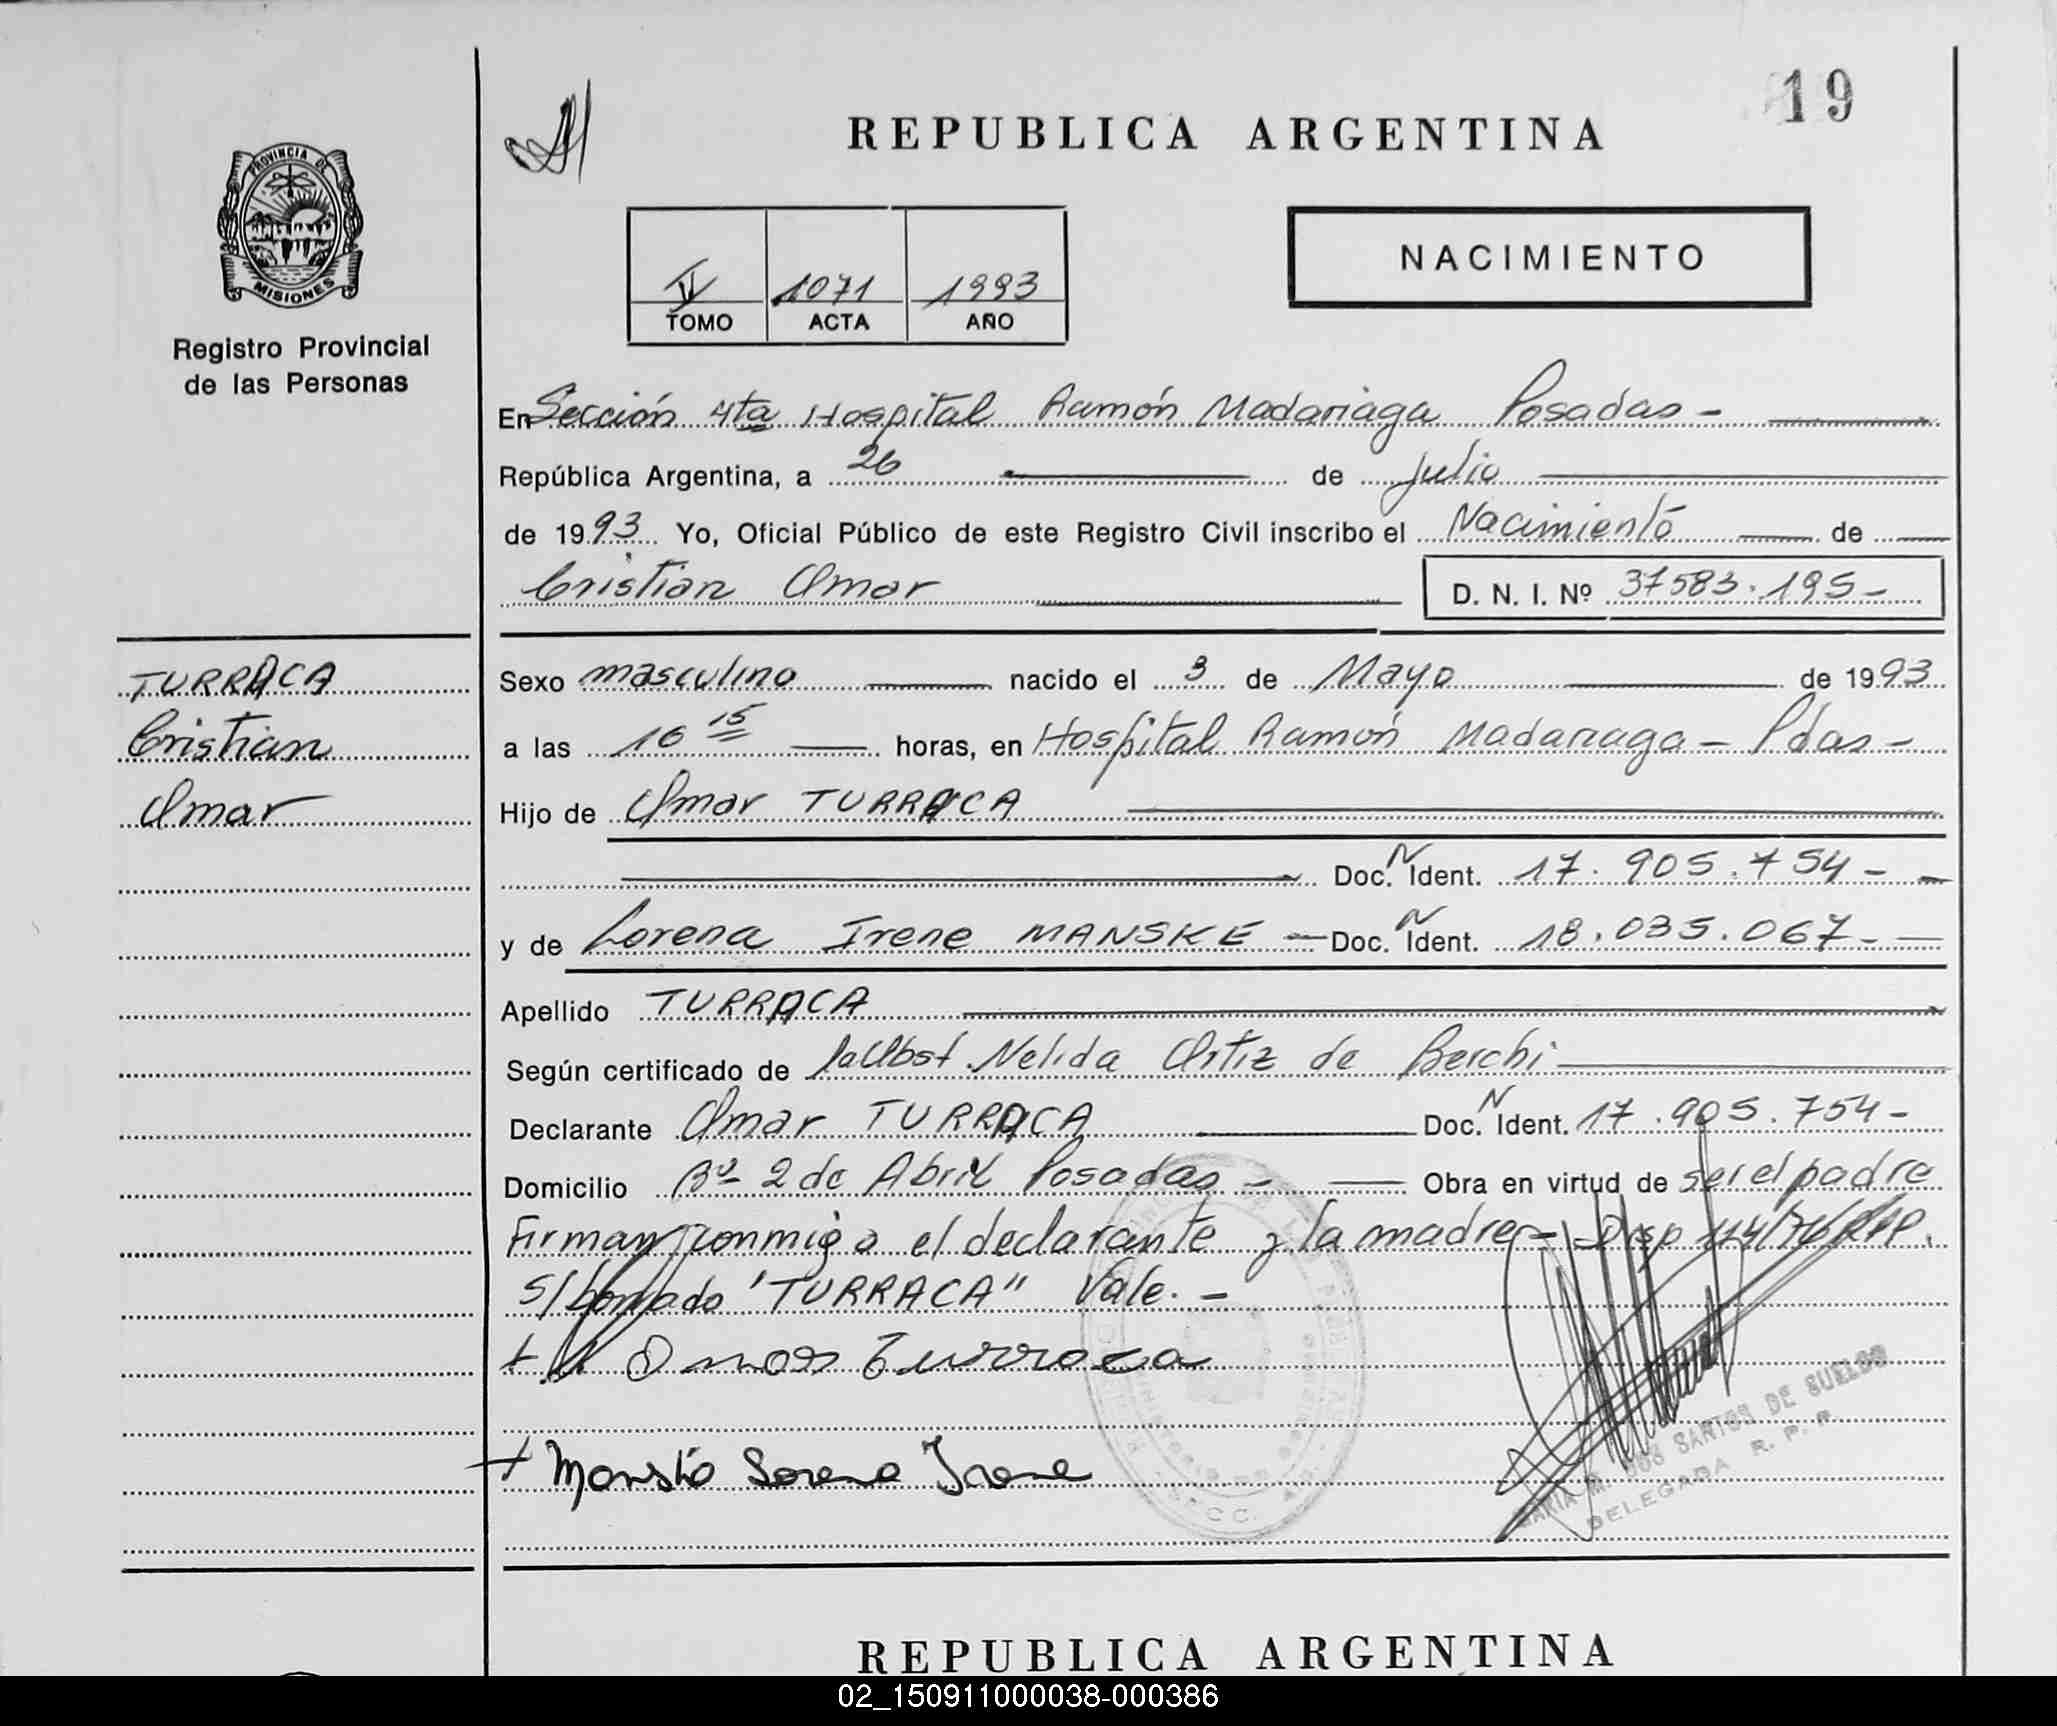 19
REPUBLICA ARGENTINA
PROVINCIA DE
MISIONES
Registro Provincial
de las Personas
II 1071 1993
TOMO ACTA AÑO
NACIMIENTO
En Sección 4ta Hospital Ramón Madariaga Posadas -
República Argentina, a 26 de julio
de 1993 Yo, Oficial Público de este Registro Civil inscribo el Nacimiento de
Cristian Omar D. N. I. Nº 37583.195-
TURRACA
Cristian
Omar
Sexo masculino nacido el 3 de Mayo de 1993
a las 16 15 horas, en Hospital Ramón Madariaga - Pdas -
Hijo de Omar TURRACA
Doc. N Ident. 17.905.754 - -
y de Lorena Irene MANSKE - Doc. N Ident. 18.035.067 - -
Apellido TURRACA
Según certificado de la Obst. Nelida Ortiz de Berchi
Declarante Omar TURRACA Doc. N Ident. 17.905.754 -
Domicilio Bº 2 de Abril Posadas - Obra en virtud de ser el padre
Firman conmigo el declarante y la madre - Disp 114/76
S/borrado "TURRACA" Vale. -
+ Omar Turraca
+ Lorena Irene
MARIA M. DOS SANTOS DE SUELDO
DELEGADA R. P. P.
REPUBLICA ARGENTINA
02_150911000038-000386